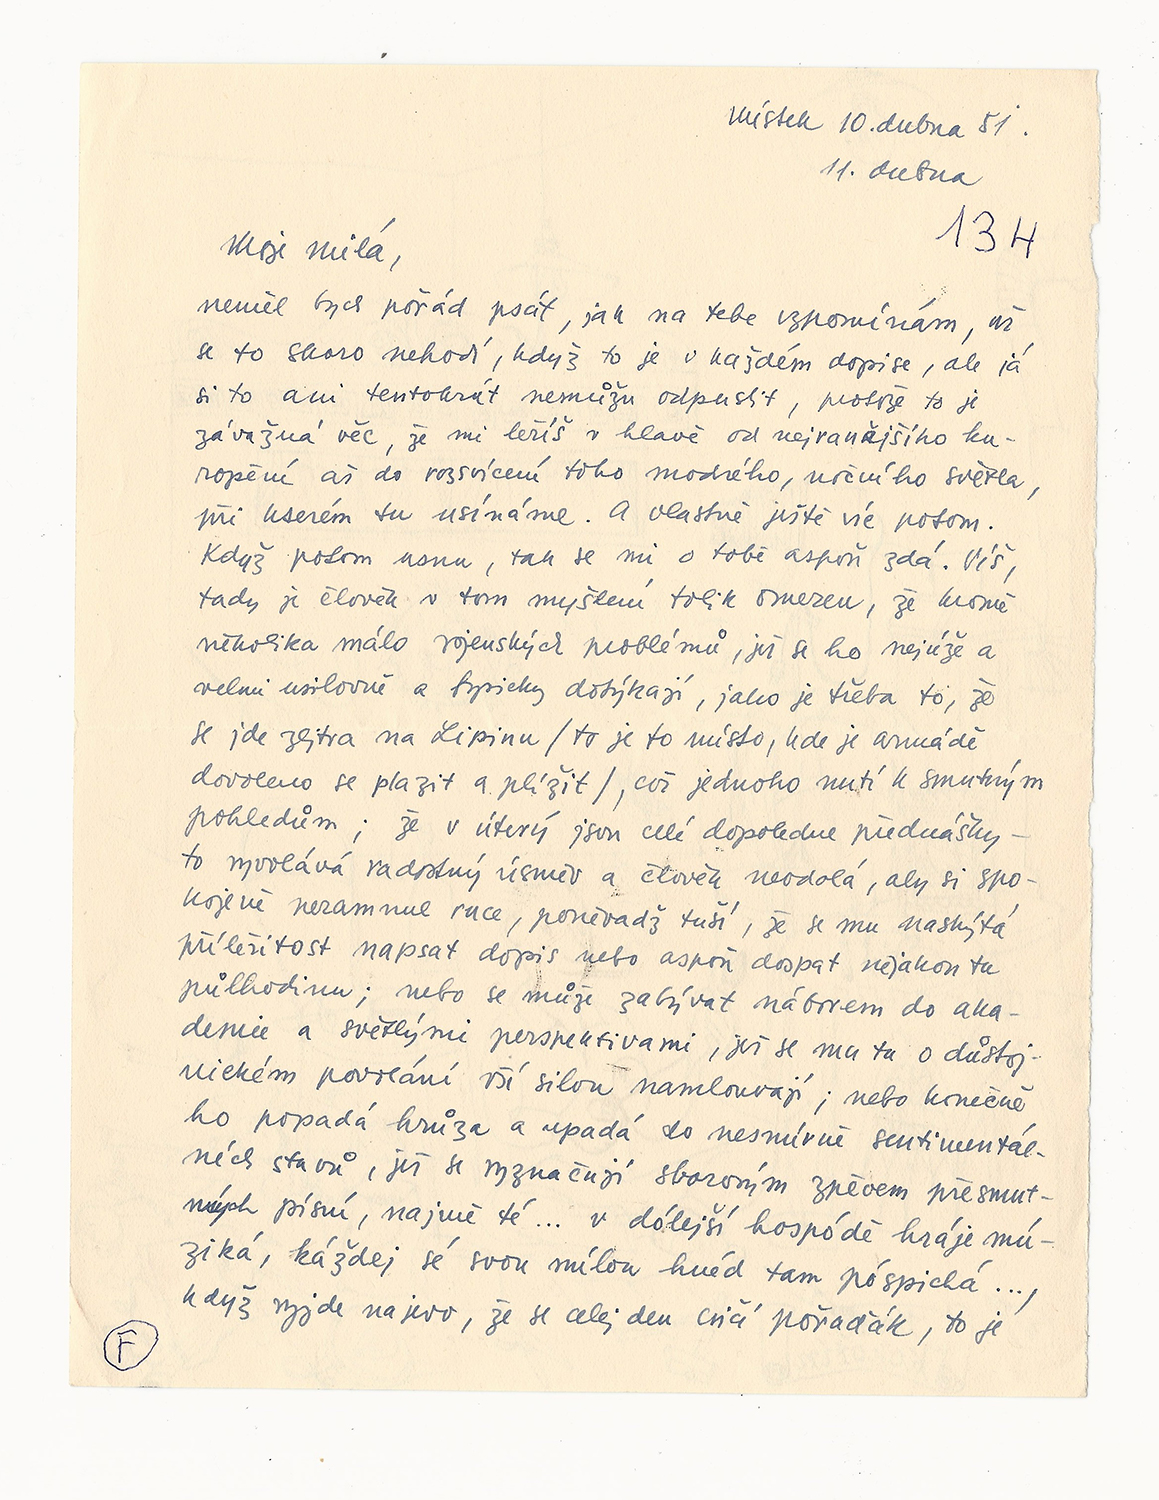 Místek 10. dubna 51.
11. dubna
134
Moje milá,
neměl bych pořád psát, jak na tebe vzpomínám, až
se to skoro nehodí, když to je v každém dopise, ale já
si to ani tentokrát nemůžu odpustit, protože to je
závažná věc, že mi ležíš v hlavě od nejranějšího ku-
ropění až do rozsvícení toho modrého, nočního světla,
při kterém tu usínáme. A vlastně ještě víc potom.
Když potom usnu, tak se mi o tobě aspoň zdá. Víš,
tady je člověk v tom myšlení tolik omezen, že kromě
několika málo vojenských problémů, jež se ho nejúže a
velmi usilovně a typicky dotýkají, jako je třeba to, že
se jde zejtra na Lipinu /to je to místo, kde je armádě
dovoleno se plazit a plížit/, což jednoho nutí k smutným
pohledům; že v úterý jsou celé dopoledne přednášky –
to vyvolává radostný úsměv a člověk neodolá, aby si spo-
kojeně nezamnul ruce, poněvadž tuší, že se mu naskýtá
příležitost napsat dopis nebo aspoň dospat nějakou tu
půlhodinu; nebo se může zabývat náborem do aka-
demie a světlými perspektivami, jež se mu tu o důstoj-
nickém povolání vší silou namlouvají; nebo konečně
ho popadá hrůza a upadá do nesmírně sentimentál-
ních stavů, jež se vyznačují sborovým zpěvem přesmut-
ných písní, najmě té... v dólejší hospódě hráje mú-
ziká, káždej sé svou mílou hnéd tam póspichá...,
když vyjde najevo, že se celej den cvičí pořaďák, to je
F